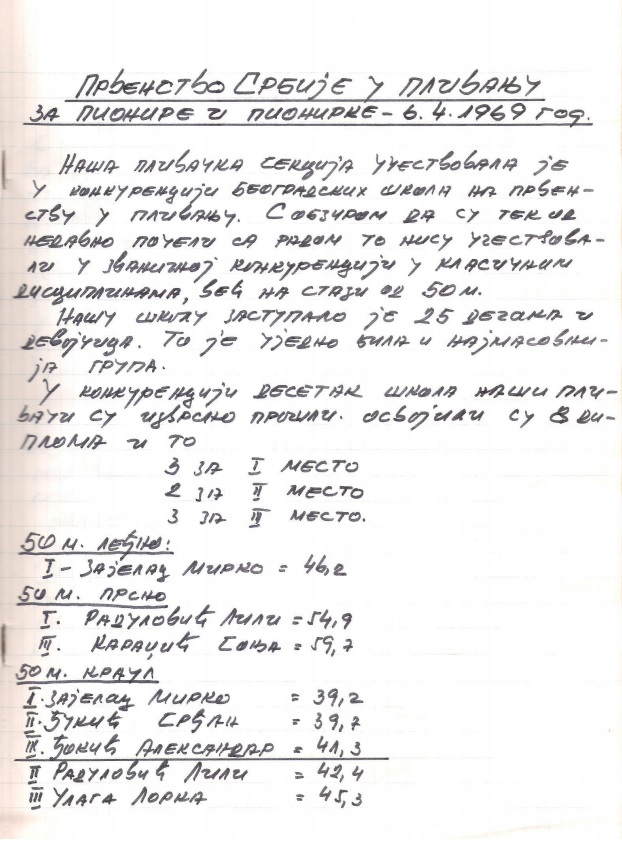 ПРВЕНСТВО СРБИЈЕ У ПЛИВАЊУ
ЗА ПИОНИРЕ И ПИОНИРКЕ - 6.4.1969 ГОД.
НАША ПЛИВАЧКА СЕКЦИЈА УЧЕСТВОВАЛА ЈЕ
У КОНКУРЕНЦИЈИ БЕОГРАДСКИХ ШКОЛА НА ПРВЕН-
СТВУ У ПЛИВАЊУ. С ОБЗИРОМ ДА СУ ТЕК ОД
НЕДАВНО ПОЧЕЛИ СА РАДОМ ТО НИСУ УЧЕСТВОВА-
ЛИ У ЗВАНИЧНОЈ КОНКУРЕНЦИЈИ У КЛАСИЧНИМ
ДИСЦИПЛИНАМА, ВЕЋ НА СТАЗИ ОД 50 М.
НАШУ ШКОЛУ ЗАСТУПАЛО ЈЕ 25 ДЕЧАКА И
ДЕВОЈЧИЦА. ТО ЈЕ УЈЕДНО БИЛА И НАЈМАСОВНИ-
ЈА ГРУПА.
У КОНКУРЕНЦИЈИ ДЕСЕТАК ШКОЛА НАШИ ПЛИ-
ВАЧИ СУ ИЗВРСНО ПРОШЛИ. ОСВОЈИЛИ СУ 8 ДИ-
ПЛОМА И ТО
3 ЗА I МЕСТО
2 ЗА II МЕСТО
3 ЗА III МЕСТО.
50 М. ЛЕЂНО:
I - ЗАЈЕЛАЦ МИРКО = 46,2
50 М. ПРСНО
I. РАДУЛОВИЋ ЛИЛИ = 54,9
III. КАРАЏИЋ СОЊА = 59,7
50 М. КРАУЛ
I. ЗАЈЕЛАЦ МИРКО = 39,2
II. ЂУКИЋ СРЂАН = 39,7
III. ЂОКИЋ АЛЕКСАНДАР = 41,3
II РАДУЛОВИЋ ЛИЛИ = 42,4
III УЛАГА ЛОРКА = 45,3